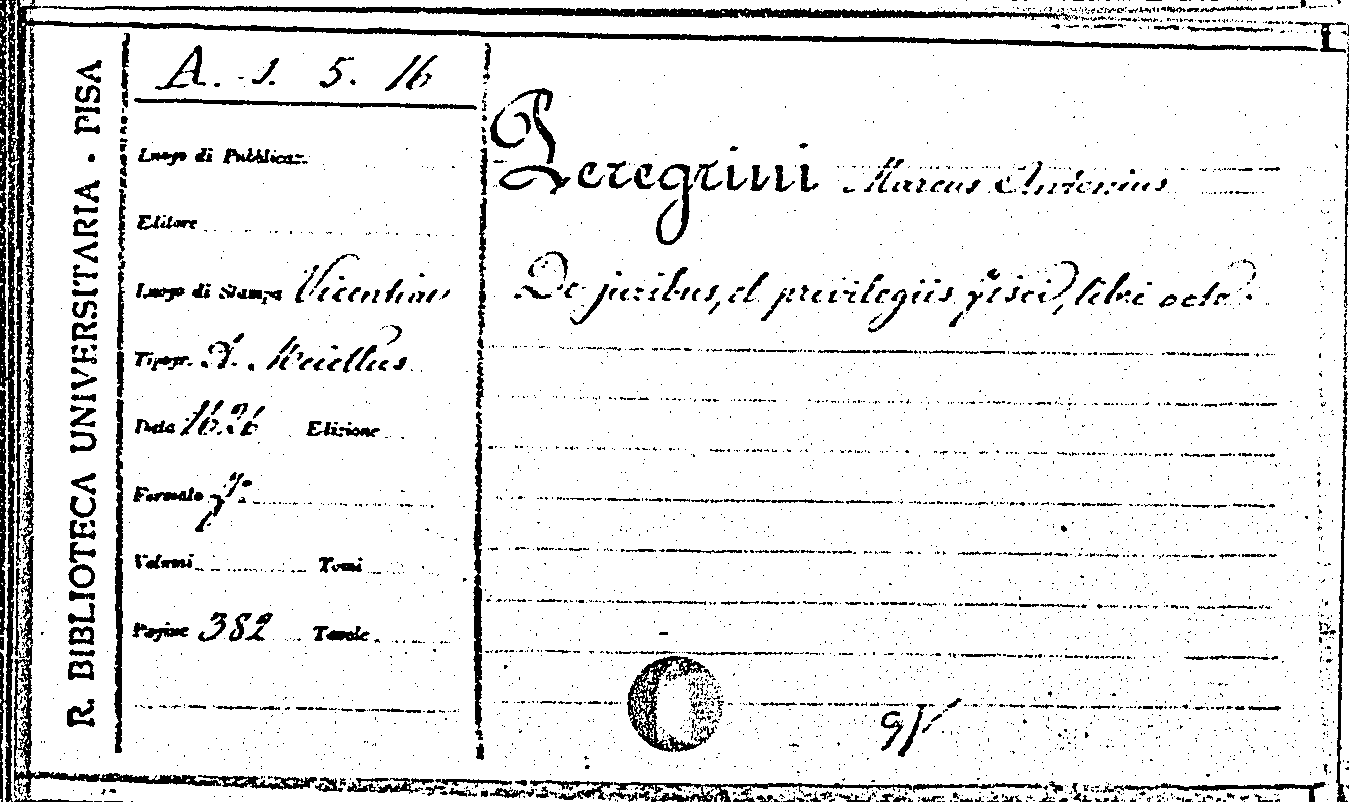 R. BIBLIOTECA UNIVERSITARIA · PISA
A. J. 5. 16
Luogo di Pubblicaz.
Editore
Luogo di Stampa Vicentiae
Tipogr. A. Meiettus
Data 1626 Edizione
Formato f.º
Volumi Tomi
Pagine 382 Tavole
Peregrini Marcus Antonius
De juribus, et privilegiis fisci, libri octo.